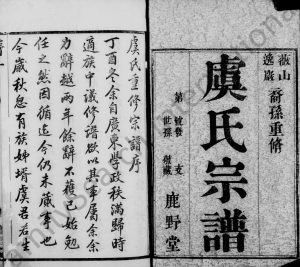 嶽山
逸巖
裔孫重脩
虞氏宗譜
第 號發 支
世孫 領藏
鹿野堂
虞氏重修宗譜序
丁酉冬余自廣東學政秩滿歸時
適族中議修譜欲以其事屬余余
力辭越兩年餘辭不獲已始勉
任之然因循迄今仍未蕆事也
今歲秋忽有族姊壻虞君若生